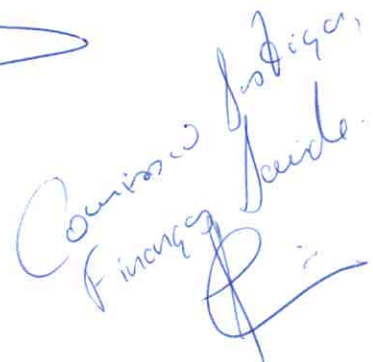 Comissão Justiça,
Finanças Saúde.